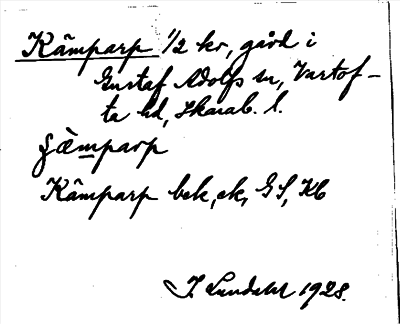 Kämparp 1/2 kr, gård i
Gustaf Adolfs sn, Vartof-
ta hd, Skarab. l.
çämparp
Kämparp bek, ek, GS, Kb
J. Lundahl 1928.